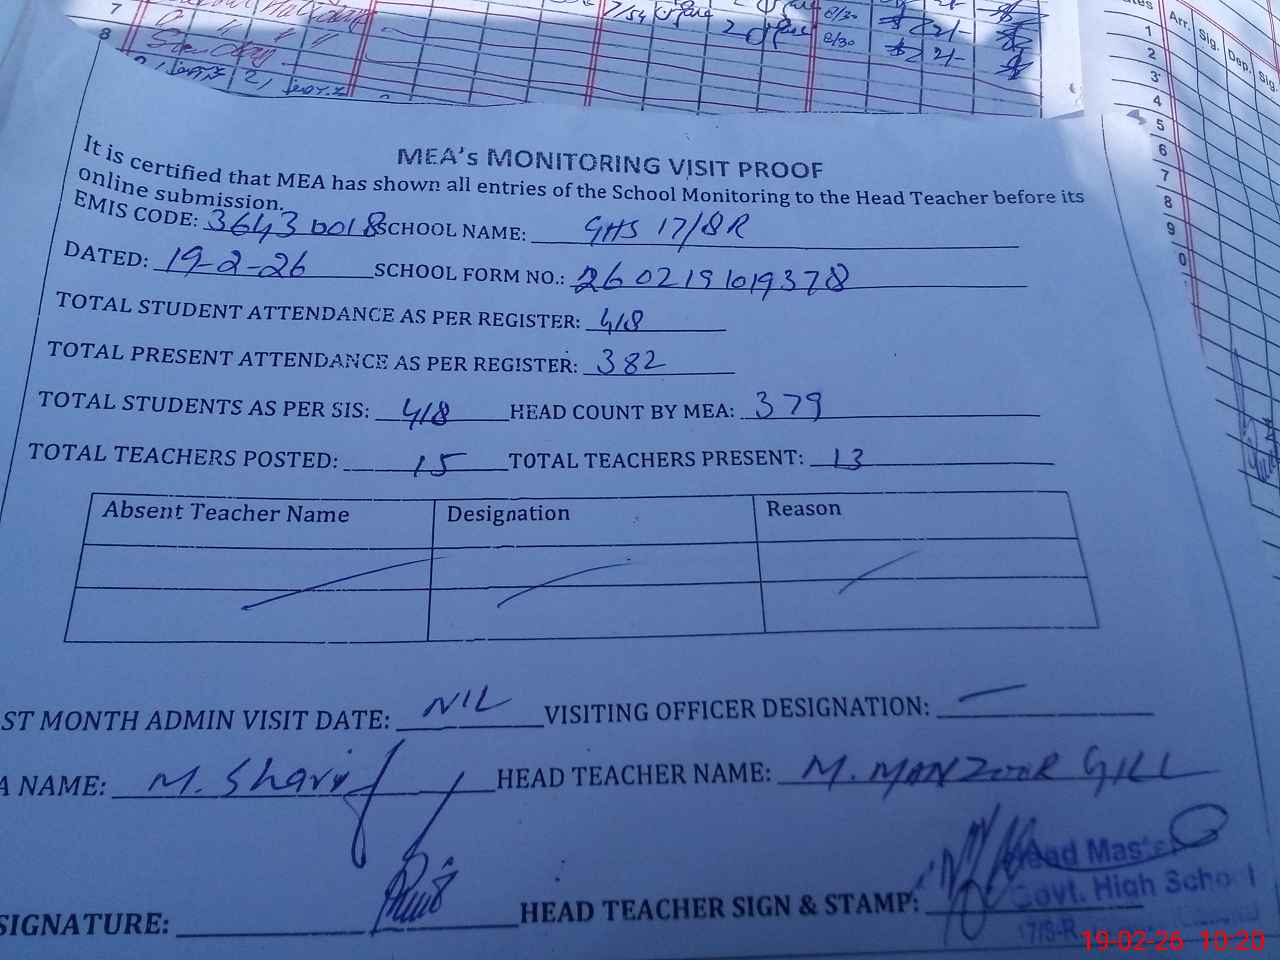 7
8
8/30
8/30
Arr. Sig. Dep. Sig.
1
2
3
4
5
6
7
8
9
0
MEA's MONITORING VISIT PROOF
It is certified that MEA has shown all entries of the School Monitoring to the Head Teacher before its
online submission.
EMIS CODE: 36430018 SCHOOL NAME: GHS 17/8R
DATED: 19-2-26 SCHOOL FORM NO.: 2602191019378
TOTAL STUDENT ATTENDANCE AS PER REGISTER: 418
TOTAL PRESENT ATTENDANCE AS PER REGISTER: 382
TOTAL STUDENTS AS PER SIS: 418 HEAD COUNT BY MEA: 379
TOTAL TEACHERS POSTED: 15 TOTAL TEACHERS PRESENT: 13
Absent Teacher Name Designation Reason
ST MONTH ADMIN VISIT DATE: NIL VISITING OFFICER DESIGNATION: —
A NAME: M. Sharif HEAD TEACHER NAME: M. MANZOOR GILL
SIGNATURE: HEAD TEACHER SIGN & STAMP:
Head Master
Govt. High School
17/8-R
19-02-26 10:20